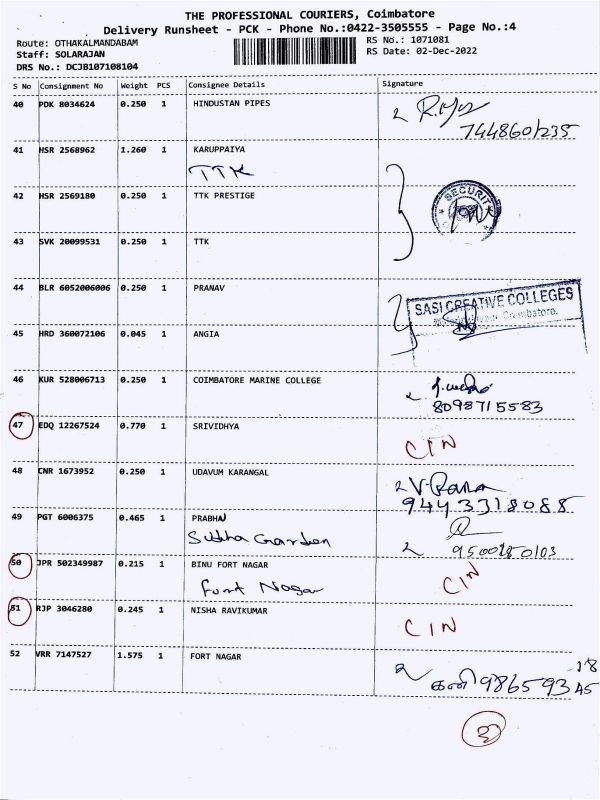 THE PROFESSIONAL COURIERS, Coimbatore
Delivery Runsheet - PCK - Phone No.:0422-3505555 - Page No.:4
Route: OTHAKALMANDABAM RS No.: 1071081
Staff: SOLARAJAN RS Date: 02-Dec-2022
DRS No.: DCJB107108104
S No Consignment No Weight PCS Consignee Details Signature
40 PDK 8034624 0.250 1 HINDUSTAN PIPES
7448601235
41 HSR 2568962 1.260 1 KARUPPAIYA
TTK
42 HSR 2569180 0.250 1 TTK PRESTIGE
SECURIT
43 SVK 20099531 0.250 1 TTK
44 BLR 6052006006 0.250 1 PRANAV
SASI CREATIVE COLLEGES
Coimbatore.
45 HRD 360072106 0.045 1 ANGIA
46 KUR 528006713 0.250 1 COIMBATORE MARINE COLLEGE
8098715583
47 EDQ 12267524 0.770 1 SRIVIDHYA
CIN
48 CNR 1673952 0.250 1 UDAVUM KARANGAL
9443318088
49 PGT 6006375 0.465 1 PRABHAN
Subha Garden
50 JPR 502349987 0.215 1 BINU FORT NAGAR
Fort Nagar CIN
51 RJP 3046280 0.245 1 NISHA RAVIKUMAR
CIN
52 VRR 7147527 1.575 1 FORT NAGAR
கனி 9865993 45
18